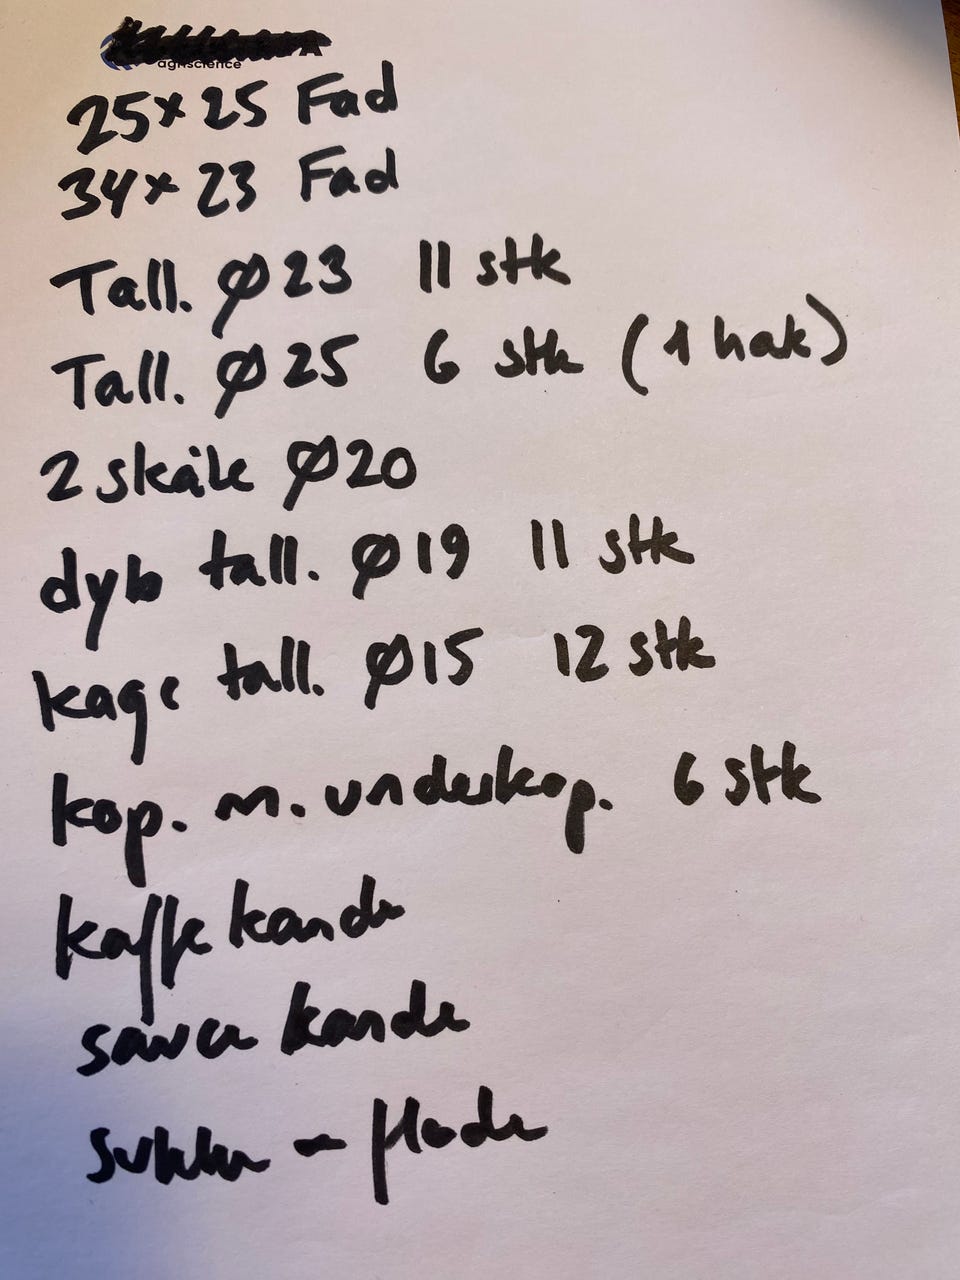 agriscience
25x25 Fad
34x23 Fad
Tall. Ø23 11 stk
Tall. Ø25 6 stk (1 hak)
2 skåle Ø20
dyb tall. Ø19 11 stk
kage tall. Ø15 12 stk
kop. m. underkop. 6 stk
kaffe kande
sauce kande
sukker - fløde